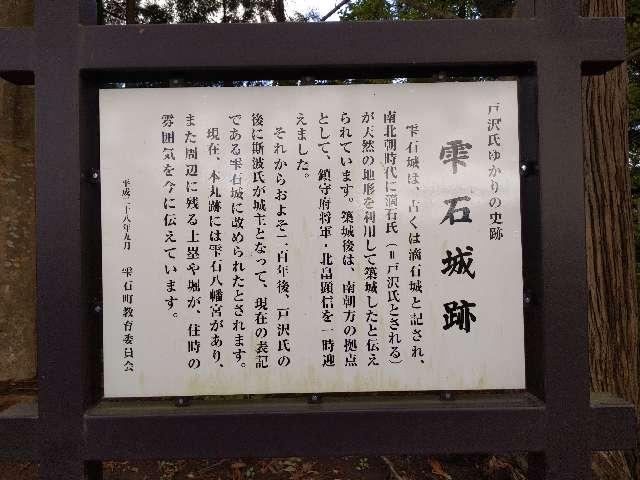 戸沢氏ゆかりの史跡
雫石城跡
雫石城は、古くは滴石城と記され、
南北朝時代に滴石氏（＝戸沢氏とされる）
が天然の地形を利用して築城したと伝え
られています。築城後は、南朝方の拠点
として、鎮守府将軍・北畠顕信を一時迎
えました。
それからおよそ二百年後、戸沢氏の
後に斯波氏が城主となって、現在の表記
である雫石城に改められたとされます。
現在、本丸跡には雫石八幡宮があり、
また周辺に残る土塁や堀が、往時の
雰囲気を今に伝えています。
平成二十八年五月　雫石町教育委員会